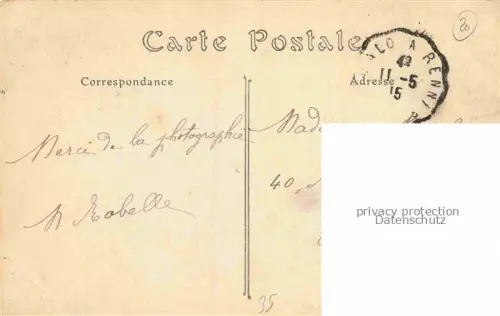 Carte Postale
20
Correspondance
Adresse
LO A RENN
11 -5
15
Merci de la photographie
Mad
40,
privacy protection
Datenschutz
35